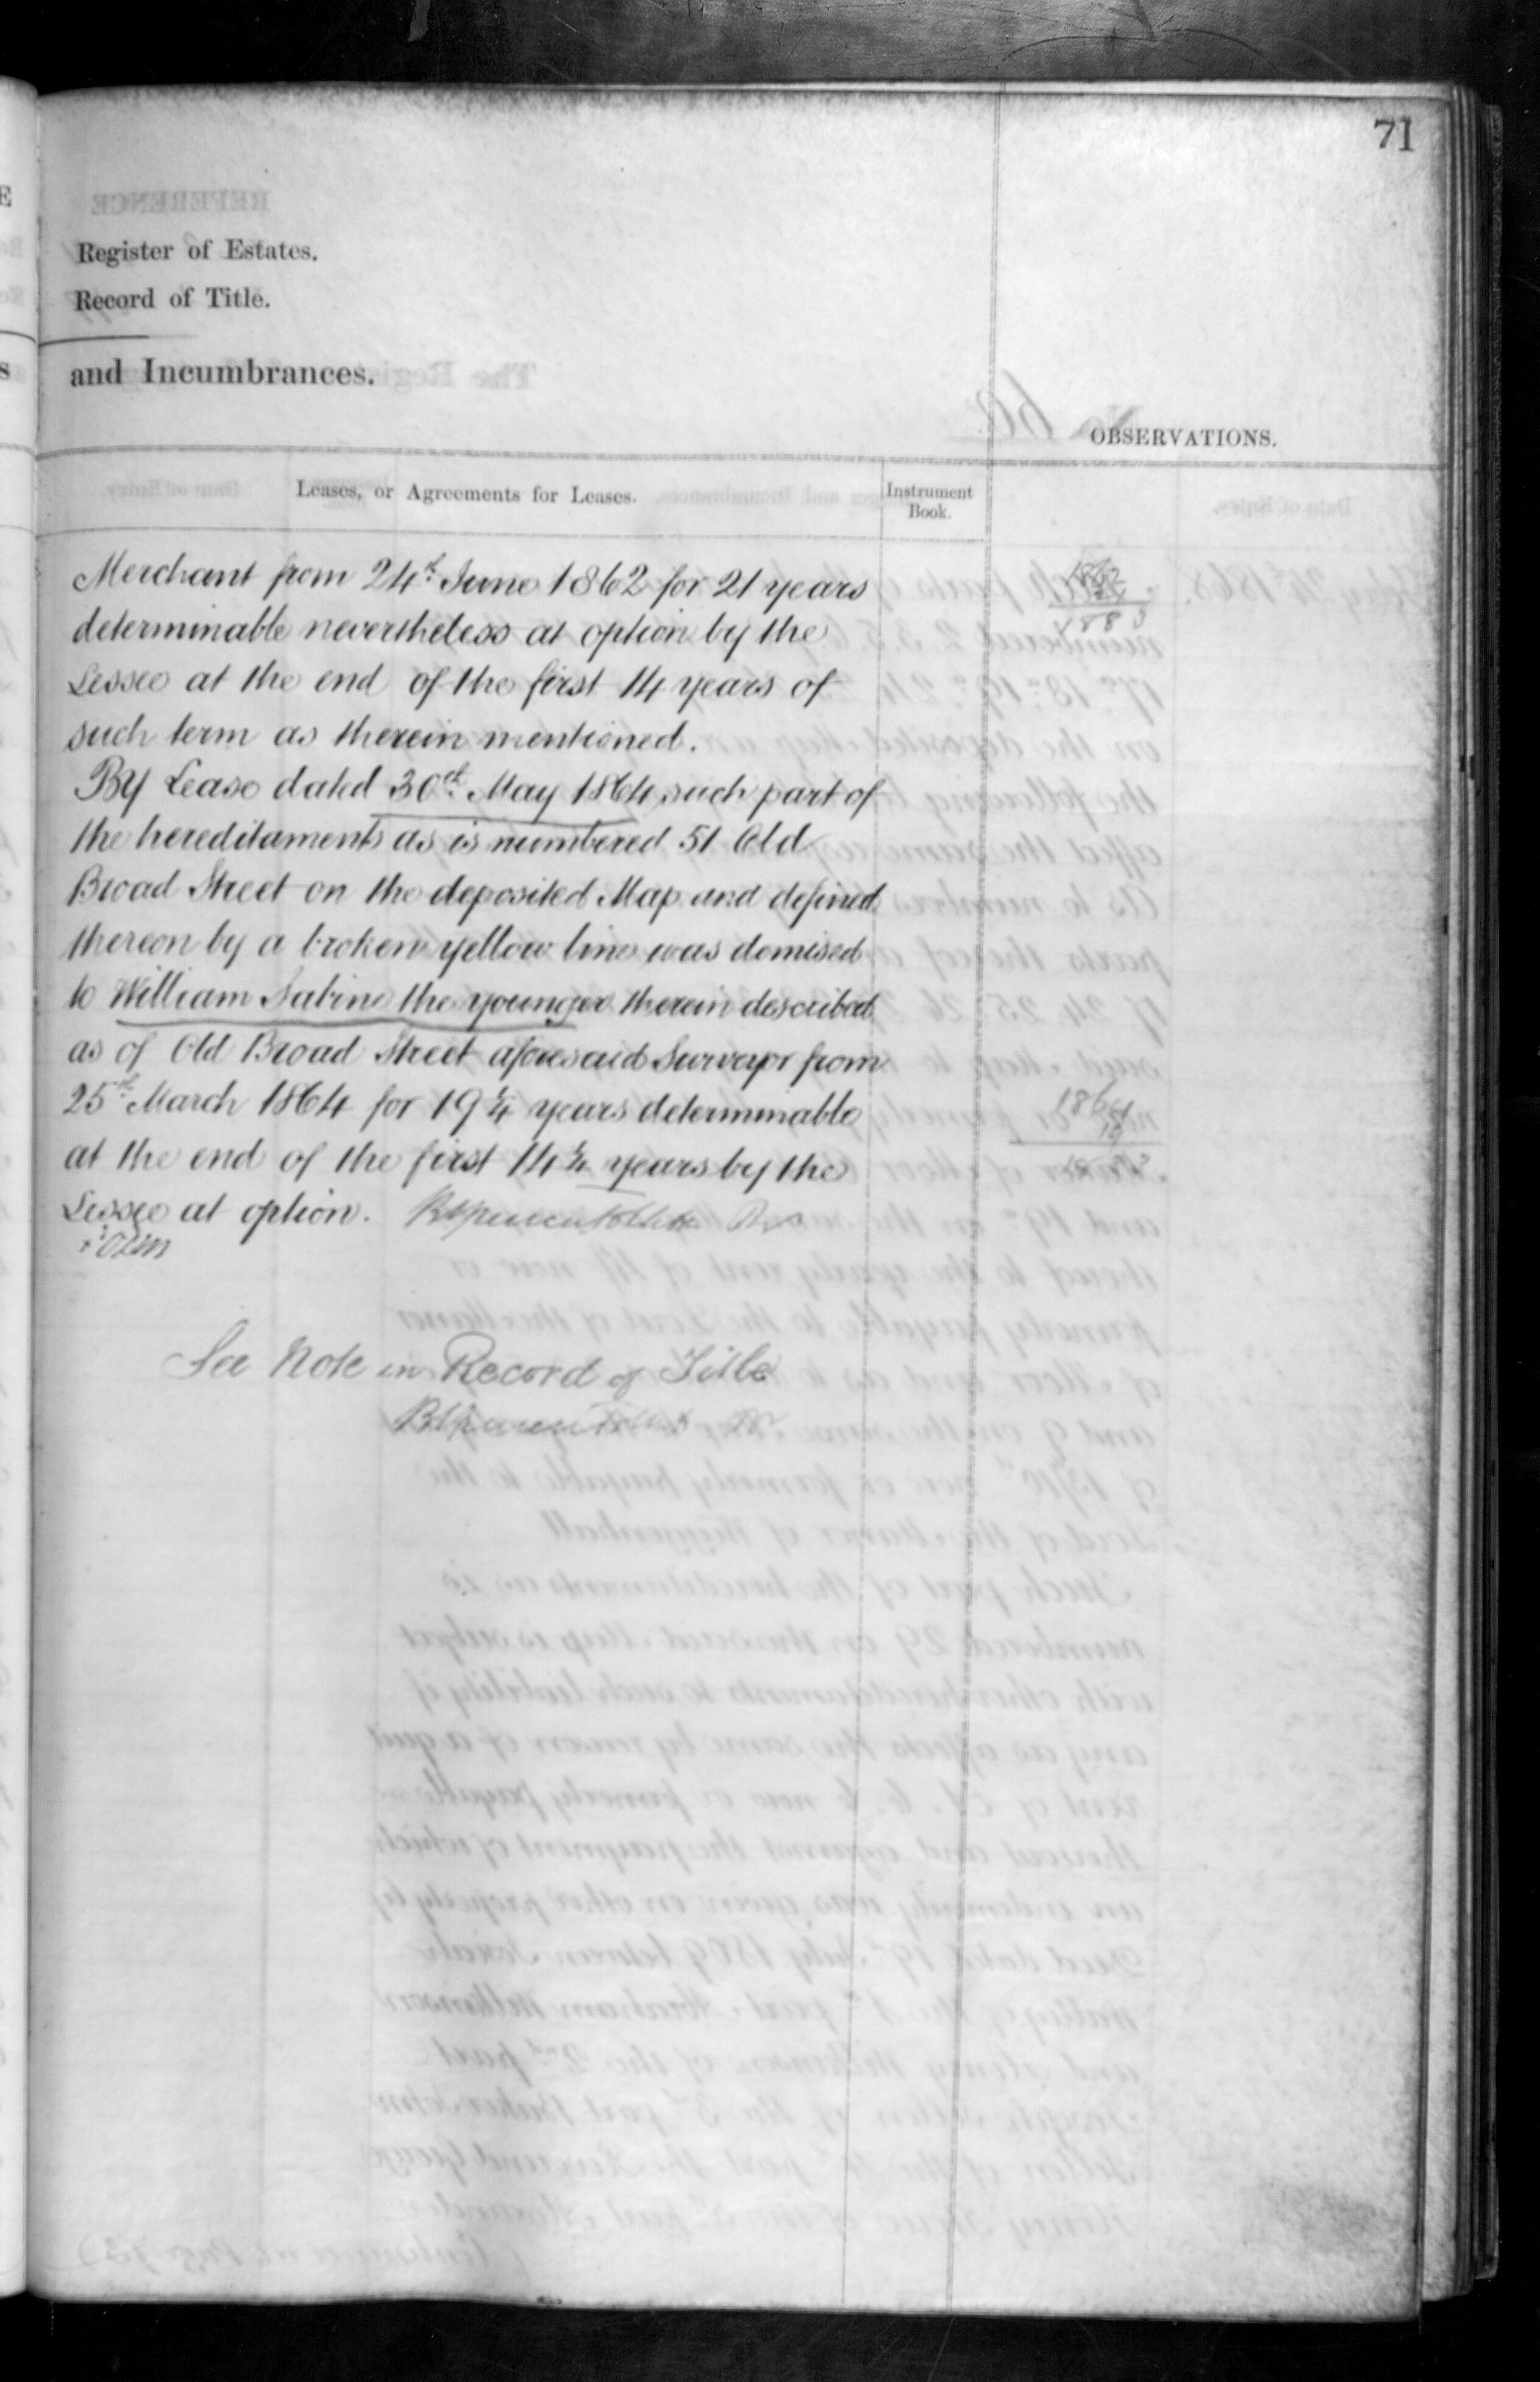 71
Register of Estates.
Record of Title.
and Incumbrances.
OBSERVATIONS.
Leases, or Agreements for Leases.
Instrument
Book.
Merchant from 24th June 1862 for 21 years
determinable nevertheless at option by the
Lessee at the end of the first 14 years of
such term as therein mentioned.
By Lease dated 30th May 1864 such part of
the hereditaments as is numbered 51 Old
Broad Street on the deposited Map and defined
thereon by a broken yellow line was demised
to William Sabine the younger therein described
as of Old Broad Street aforesaid Surveyor from
25th March 1864 for 19 1/4 years determinable
at the end of the first 14 1/4 years by the
Lessee at option.
See Note in Record of Title
1862
1883
1864
19